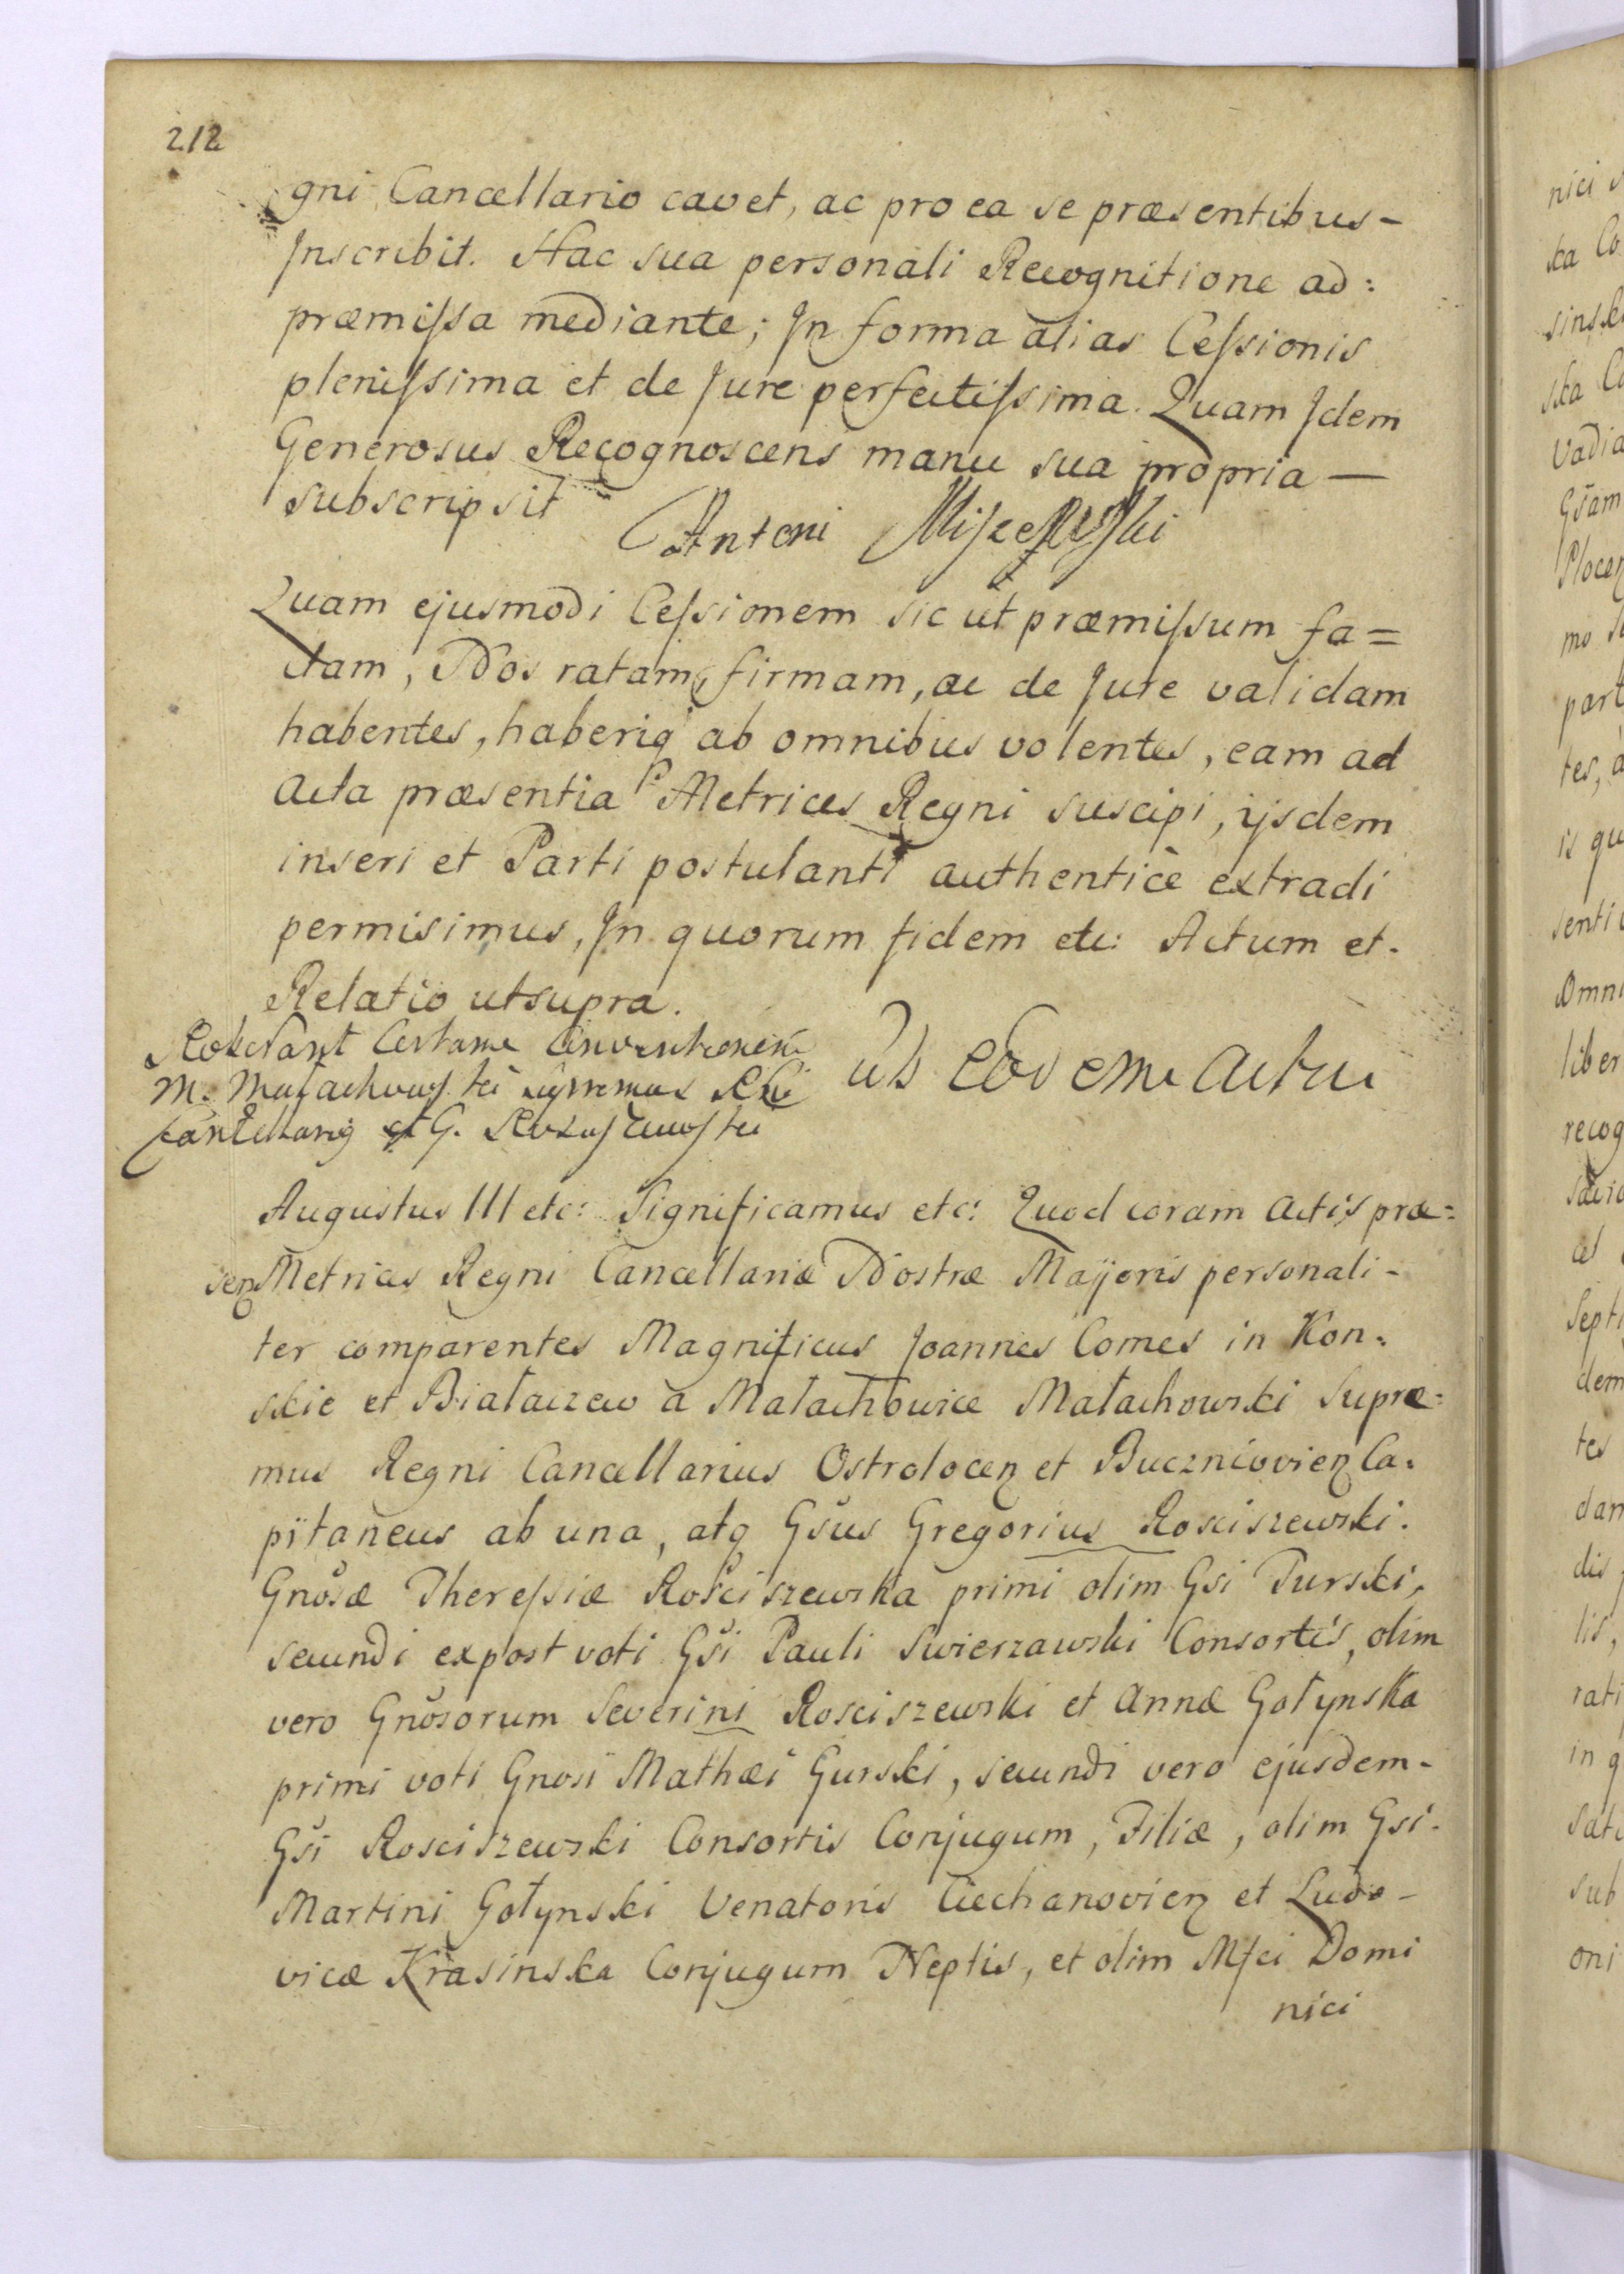 212
gni Cancellario cavet, ac pro ea se præsentibus-
Jnscribit. Hac sua personali Recognitione ad:
præmissa mediante; Jn forma alias Cessionis
plenissima et de Jure perfectissima. Quam Jdem
Generosus Recognoscens manu sua propria —
subscripsit
Antoni
Quam ejusmodi Cessionem sic ut præmissum fa=
ctam, Nos ratam, firmam, ac de Jure validam
habentes, haberiq ab omnibus volentes, eam ad
Acta præsentia Metrices Regni suscipi, ijsdem
inseri et Parti postulanti authenticè extradi
permisimus, Jn quorum fidem etc: Actum et.
Relatio utsupra.
M. Małachowski supremus
Cancellarij et G.
Ub eodem Actu
Augustus III etc: Significamus etc: Quod coram Actis præ=
senz Metrices Regni Cancellariæ Nostræ Majoris personali-
ter comparentes Magnificus Joannes Comes in Kon=
skie et Białaczew a Małachowice Małachowski Supre=
mus Regni Cancellarius Ostrolocenz et Buczniovienz Ca=
pitaneus ab una, atq Gsus Gregorius Rosciszewski.
Gnosæ Theressiæ Rosciszewska primi olim Gsi Turski,
secundi expost voti Gsi Pauli Swierzawski Consortis, olim
vero Gnosorum Severini Rosciszewski et Annæ Gołynska
primi voti Gnosi Mathæi Gurski, secundi vero ejusdem-
Gsi Rosciszewski Consortis Conjugum, Filiæ, olim Gsi.
Martini Gołynski Venatoris Ciechanovienz et Ludo-
vicæ Krasinska Conjugum Neptis, et olim Mfci Domi
nici